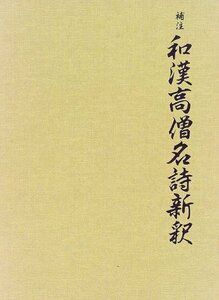 補注
和漢高僧名詩新釈